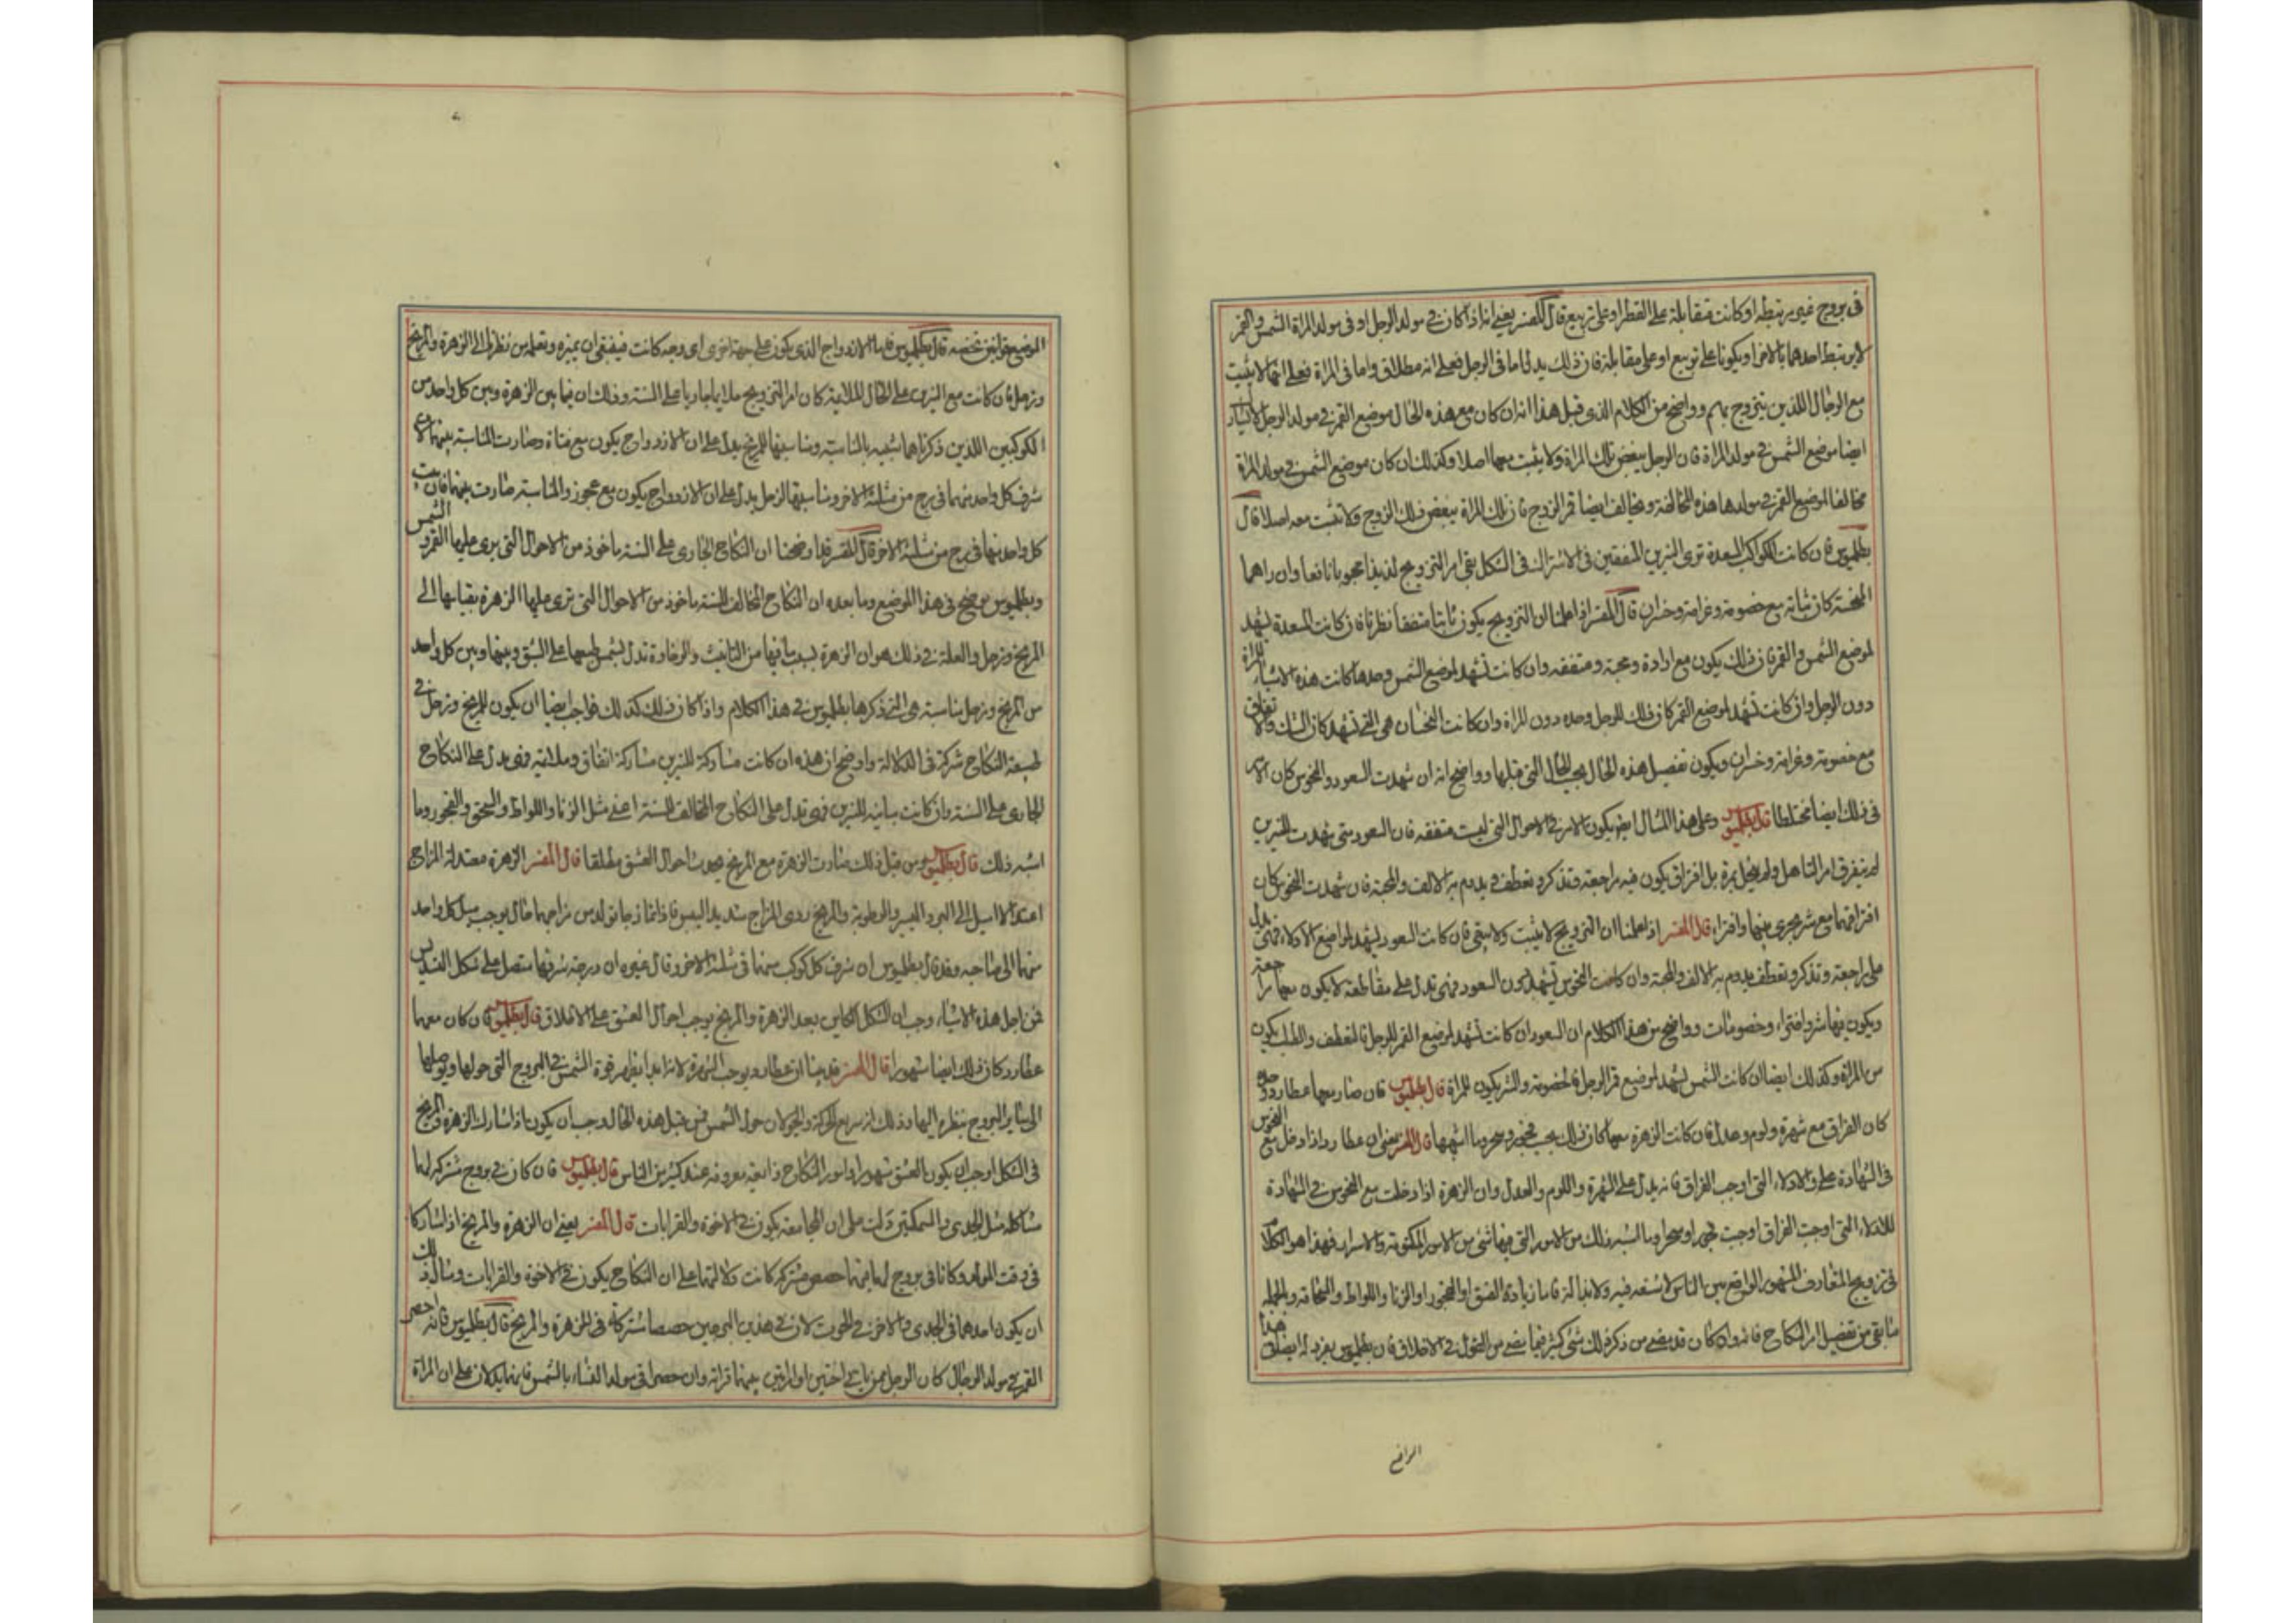 في بروج غير مرتبطة او كانت متقابلة على القطر او على تربيع قال المفسر يعني انه اذا كان في مولد الرجل او في مولد المراة الشمس والقمر
لا يرتبط احدهما بالاخر او يكونا على تربيع او على مقابلة فان ذلك يدل اما في الرجل فعلى انه مطلاق واما في المراة فعلى انها لا يثبت
مع الرجال اللذين يتزوج بهم وواضح من الكلام الذي قبل هذا انه ان كان مع هذه الحال موضع القمر في مولد الرجل
ايضا موضع الشمس في مولد المراة فان الرجل يبغض تلك المراة ولا يثبت معها اصلا وكذلك ان كان موضع الشمس في مولد المراة
مخالفا لموضع القمر في مولدها هذه المخالفة ومخالف ايضا قمر الزوج فان تلك المراة يبغض ذلك الزوج ولا تثبت معه اصلا قال
بطلميوس فان كانت الكواكب السعدة ترى النيرين المتفقين في الاشتراك في الشكل بقى امر التزويج لذيذا محبوبا نافعا وان راهما
المنحسة كان ثباته مع خصومة وغرامة وخسران قال المفسر اذا علمنا ان التزويج يكون ثابتا متفقا نظرنا فان كانت المسعدة يشهد
لموضع الشمس والقمر فان ذلك يكون مع ارادة ومحبة ومتفقه وان كانت تشهد لموضع الشمس وحدها كانت هذه الاشياء للمراة
دون الرجل وان كانت تشهد لموضع القمر كان ذلك للرجل وحده دون المراة وان كانت النحسان هي التي تشهد كان الشك والا تفاق
مع خصومة وغرامة وخسران ويكون تفصيل هذه الحال بحسب الحال التي قبلها وواضح انه ان شهدت السعود والنحوس كان الامر
في ذلك ايضا مختلطا قال بطلميوس وعلى هذا المثال ايضا يكون الامر في الاحوال التي ليست متفقه فان السعود متى شهدت للنيرين
لم يتفرق امر التاهل ولم ينحل بمرة بل افتراق يكون فيه مراجعة وتذكر وتعطف ويدوم به الالف والمحبة فان شهدت النحوس كان
افتراقهما مع شر يجرى بينهما وافتراء قال المفسر اذا علمنا ان التزويج لا يثبت ولا يبقى فان كانت السعود يشهد لمواضع الادلاء فهى تدل
على مراجعة وتذكر وتعطف يدوم به الالف والمحبة وان كانت النحوس تشهد دون السعود فهى تدل على مقاطعة لا يكون معها مراجعة
ويكون فيها شر وافتراء وخصومات وواضح من هذا الكلام ان السعود ان كانت تشهد لموضع القمر للرجل فالتعطف والطلب يكون
من المراة وكذلك ايضا ان كانت الشمس يشهد لموضع قمر الرجل فالخصومة والشر يكون للمراة قال بطلميوس فان صار معها عطارد وحده
كان الفراق مع شهرة ولوم وعدل فان كانت الزهرة معها كان ذلك بسبب فجور وسحر وما اشبهها قال المفسر يعني ان عطارد اذا دخل مع النحوس
في الشهادة على الادلاء التي اوجبت الفراق فانه يدل على الشهرة واللوم والعدل وان الزهرة اذا دخلت مع النحوس في الشهادة
للادلاء التي اوجبت الفراق اوجبت فجور او سحر او ما اشبه ذلك من الامور التي فيها شئ من الامور المكتومة والاسرار فهذا هو الكلام
في تزويج المتعارف المشهور الواقع بين الناس فاما زيادة العشق او الفجور او الزنا واللواط والسحاقة وبالجملة
ما بقى من تفصيل امر النكاح فانه وان كان قد مضى من ذكر ذلك شئ كثير فيما مضى من القول في الاخلاق فان بطلميوس يفرد له ايضا في هذا
الموضع قوانين تخصه قال بطلميوس فاما الازدواج الذي يكون على جهة اخرى اى وجه كانت فينبغى ان تميزه وتعلمه من نظرك الى الزهرة والمريخ
وزحل فان كانت مع النيرين على الحال الملايمة كان امر التزويج ملايما جاريا على السنة وذلك ان فيما بين الزهرة وبين كل واحد من
الكوكبين اللذين ذكرناهما شبيه بالمناسبة ومناسبتها للمريخ يدل على ان الازدواج يكون مع فتاة وصارت المناسبة بينهما لان
شرف كل واحد منهما في برج من مثلثة الاخر ومناسبتها لزحل يدل على ان الازدواج يكون مع عجوز والمناسبة صارت بينهما فان بيت
كل واحد منهما في برج من مثلثة الاخر قال المفسر قد اوضحنا ان النكاح الجارى على السنة ماخوذ من الاحوال التي يرى عليها القمر والشمس
وبطلميوس يوضح في هذا الموضع وما بعده ان النكاح المخالف للسنة ماخوذ من الاحوال التي ترى عليها الزهرة بقياسها الى
المريخ وزحل والعلة في ذلك هو ان الزهرة لسبب ما فيها من التانيث والرخاوة تدل بنفس طبعها على الشبق وبينها وبين كل واحد
من المريخ وزحل مناسبة هي التي ذكرها بطلميوس في هذا الكلام واذا كان ذلك كذلك فواجب ايضا ان يكون للمريخ وزحل في
طبيعة النكاح شركة في الدلالة وواضح ان هذه ان كانت مشاركة للنيرين مشاركة اتفاق وملائمة فهى تدل على النكاح
الجارى على السنة وان كانت مباينة للنيرين فهى تدل على النكاح المخالف للسنة اعنى مثل الزنا واللواط والسحق والفجور وما
اشبه ذلك قال بطلميوس من قبل ذلك صارت الزهرة مع المريخ يحدث احوال العشق مطلقا قال المفسر الزهرة معتدلة المزاج
اعتدالا اميل الى البرد اليسير والرطوبة والمريخ ردى المزاج شديد اليبس فاذا تمازجا تولد من مزاجهما حال يوجب ميل كل واحد
منهما الى صاحبه وقد قال بطلميوس ان شرف كل كوكب منهما في مثلثة الاخر وقال غيره ان درجة شرفها متصل على شكل التسديس
فمن اجل هذه الاشياء وجب ان الشكل الكاين بعد الزهرة والمريخ يوجب احوال العشق على الاطلاق قال بطلميوس فان كان معهما
عطارد كان ذلك ايضا مشهورا قال المفسر قد بينا ان عطارد يوجب الشهرة لانه ابدا يظهر قوة الشمس في البروج التي حولها ويوصلها
الى ساير البروج بنظره اليها وذلك انه سريع الحركة والجولان حول الشمس فمن قبل هذه الحال وجب ان يكون اذا شارك الزهرة والمريخ
في الشكل اوجب ان يكون العشق مشهورا وامور النكاح ذايعة معروفة عند كثير من الناس قال بطلميوس فان كان في بروج مشتركة لها
مشاكلة مثل الجدى والسمكتين دلت على ان المجامعة يكون في الاخوة والقرابات قال المفسر يعني ان الزهرة والمريخ اذا اشتركا
في وقت المولد وكانا في بروج لها فيها حصص مشتركة كانت دلالتها على ان النكاح يكون في الاخوة والقرابات ومثال ذلك
ان يكون احدهما في الجدى والاخر في الحوت لان في هذين البرجين حصصا مشتركة في الزهرة والمريخ قال بطلميوس فانه احصى
القمر في مولد الرجال كان الرجل ممن ياتى اختين او امراتين بينهما قرابة وان حصرا في مولد النساء بالشمس فانهما يدلان على ان المراة
المراة